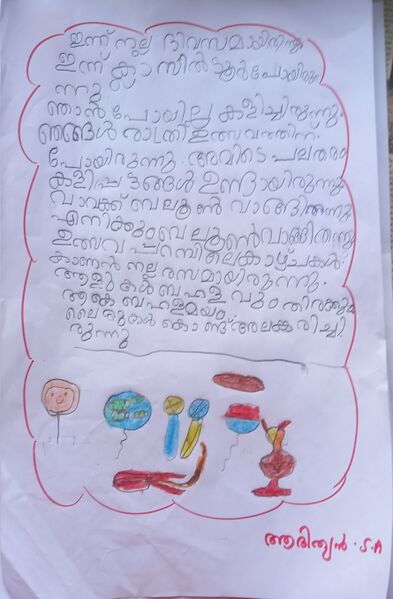 ഇന്ന് നല്ല ദിവസമായിരുന്നു
ഇന്ന് ക്ലാസിൽ ടൂർ പോയിരു
ന്നു.
ഞാൻ പോയില്ല കളിച്ചിരുന്നു.
ഞങ്ങൾ രാത്രി ഉത്സവത്തിന്
പോയിരുന്നു. അവിടെ പലതരം
കളിപ്പാട്ടങ്ങൾ ഉണ്ടായിരുന്നു
വാവക്ക് ബലൂൺ വാങ്ങി
എനിക്കും ബലൂൺ വാങ്ങി തന്നു
ഉത്സവ പറമ്പിലെ കാഴ്ചകൾ
കാണാൻ നല്ല രസമായിരുന്നു.
ആളുകൾ ബഹളവും തിരക്കും
ആകെ ബഹളമയം.
ലൈറ്റുകൾ കൊണ്ട് അലങ്കരിച്ചി
രുന്നു
ആദിത്യൻ . S.A